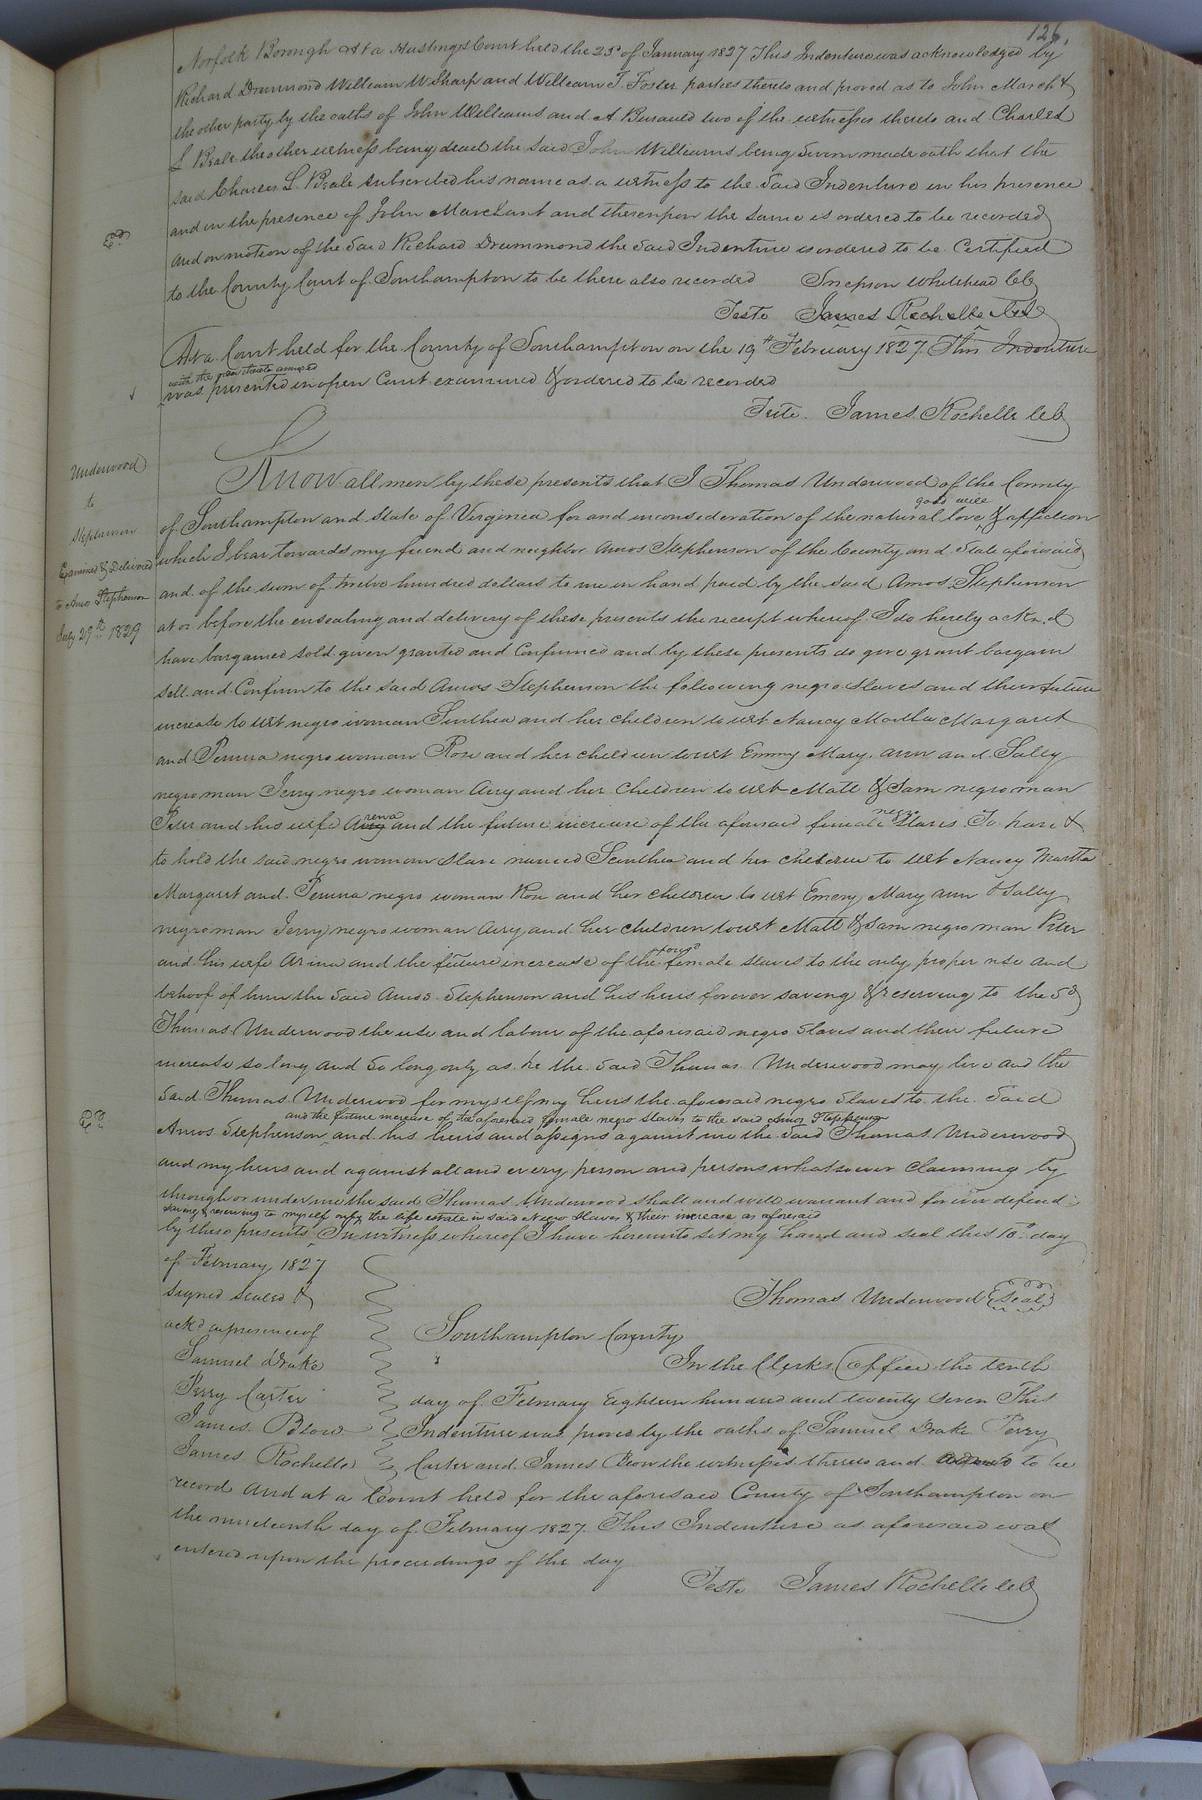 126.
Norfolk Borough At a Hustings Court held the 23d of January 1827 This Indenture was acknowledged by
Richard Drummond William W Sharp and William T Foster parties thereto and proved as to John Marsh &
the other party by the oaths of John Williams and A two of the witnesses thereto and Charles
L Beale the other witness being dead the said John Williams being Sworn made oath that the
said Charles L Beale subscribed his name as a witness to the said Indenture in his presence
and in the presence of John Marchant and thereupon the same is ordered to be recorded
Ed
and on motion of the Said Richard Drummond the Said Indenture is ordered to be Certified
to the County Court of Southampton to be there also recorded Simpson Whitehead CC
Teste James Rochelle Clk
At a Court held for the County of Southampton on the 19th February 1827 This Indenture
with the thereto annexed
was presented in open Court examined & ordered to be recorded
Teste. James Rochelle CC
Underwood
to
Stephenson
Examined & Delivered
to Amos Stephenson
July 29th 1829
Know all men by these presents that I Thomas Underwood of the County
good will
of Southampton and State of Virginia for and in consideration of the natural love & affection
which I bear towards my friend and neighbor Amos Stephenson of the County and State aforesaid
and of the sum of twelve hundred dollars to me in hand paid by the said Amos Stephenson
at or before the ensealing and delivery of these presents the receipt whereof I do hereby ackn.d
have bargained sold given granted and Confirmed and by these presents do give grant bargain
sell and Confirm to the said Amos Stephenson the following negro slaves and their future
increase to wit negro woman Sinthia and her children to wit Nancy Martha Margaret
and Penina negro woman Rose and her children to wit Emmy Mary ann and Sally
negro man Jerry negro woman Airy and her Children to wit Matt & Sam negro man
rena negro
Peter and his wife Airy and the future increase of the aforesaid female Slaves. To have &
to hold the said negro woman slave named Scinthia and her Children to wit Nancy Martha
Margaret and Penina negro woman Rose and her children to wit Emmy Mary ann & Sally
negro man Jerry negro woman Airy and her children to wit Matt & Sam negro man Peter
afores'd
and his wife Arina and the future increase of the female slaves to the only proper use and
behoof of him the said Amos Stephenson and his heirs forever saving & reserving to the sd
Thomas Underwood the use and labour of the aforesaid negro Slaves and their future
increase so long and so long only as he the said Thomas Underwood may live and the
said Thomas Underwood for myself my heirs the aforesaid negro Slaves to the Said
Ed
and the future increase of the aforesaid female negro slaves to the said Amos Stephenson
Amos Stephenson and his heirs and assigns against me the said Thomas Underwood
and my heirs and against all and every person and persons whatsoever claiming by
through or under me the said Thomas Underwood shall and will warrant and forever defend
saving & reserving to myself only the life estate in said Negro Slaves & their increase as aforesaid
by these presents In witness whereof I have hereunto set my hand and seal this 10th day
of February 1827
Signed sealed &
ackd in presence of
Samuel Drake
Perry Carter
James Blow
James Rochelle
Thomas Underwood (Seal)
Southampton County
In the Clerks Office the tenth
day of February Eighteen hundred and twenty Seven This
Indenture was proved by the oaths of Samuel Drake Perry
Carter and James Blow the witnesses thereto and to be
record And at a Court held for the aforesaid County of Southampton on
the nineteenth day of February 1827. This Indenture as aforesaid was
entered upon the proceedings of the day
Teste James Rochelle CC